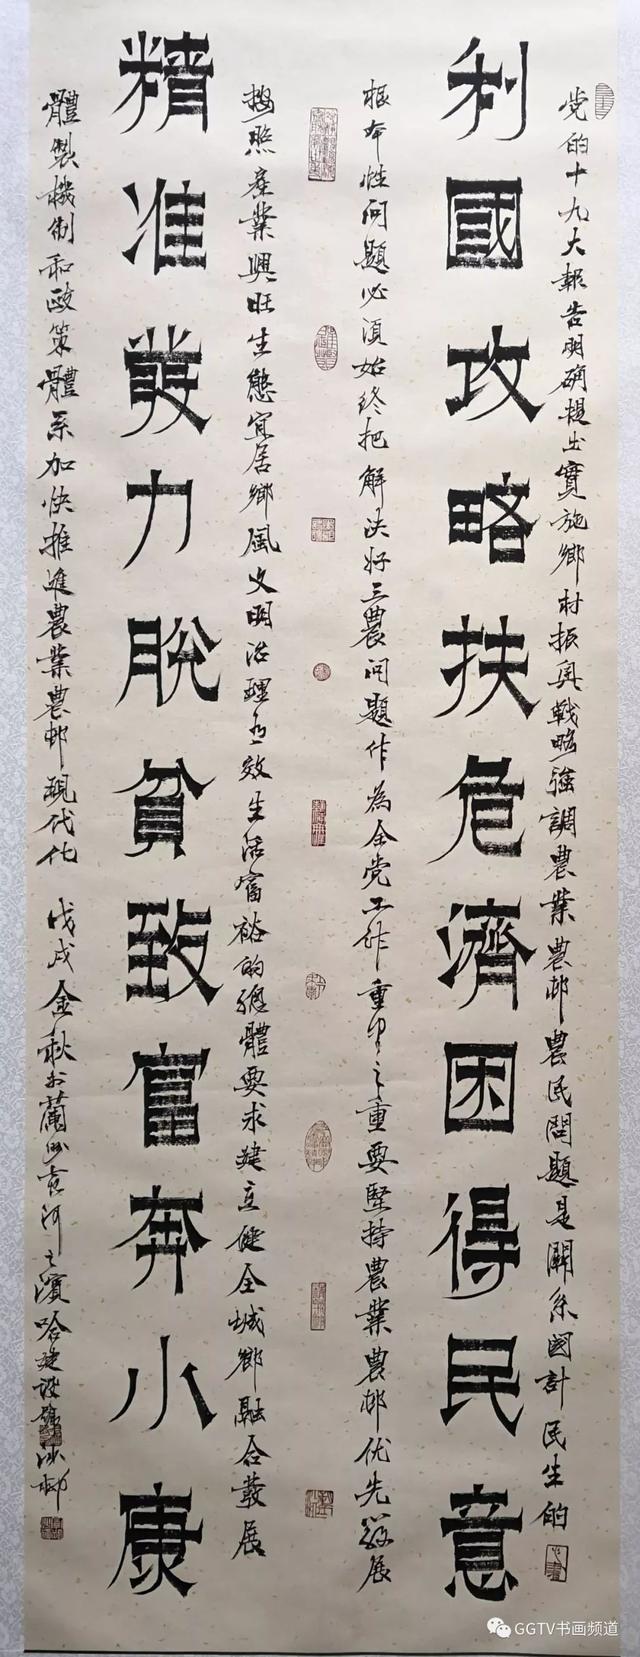 党的十九大報告明确提出實施鄉村振興戰略強調農業農邨農民問題是關系國計民生的
利國攻略扶危濟困得民意
根本性问题必须始终把解决好三農问题作為全党工作重中之重要堅持農業農邨优先發展
按照産業興旺生態宜居鄉風文明治理有效生活富裕的總體要求建立健全城鄉融合發展
精准發力脱貧致富奔小康
體製機制和政策體系加快推進農業農邨現代化 戊戌金秋於蘭州黄河之濱哈建設
GGTV书画频道